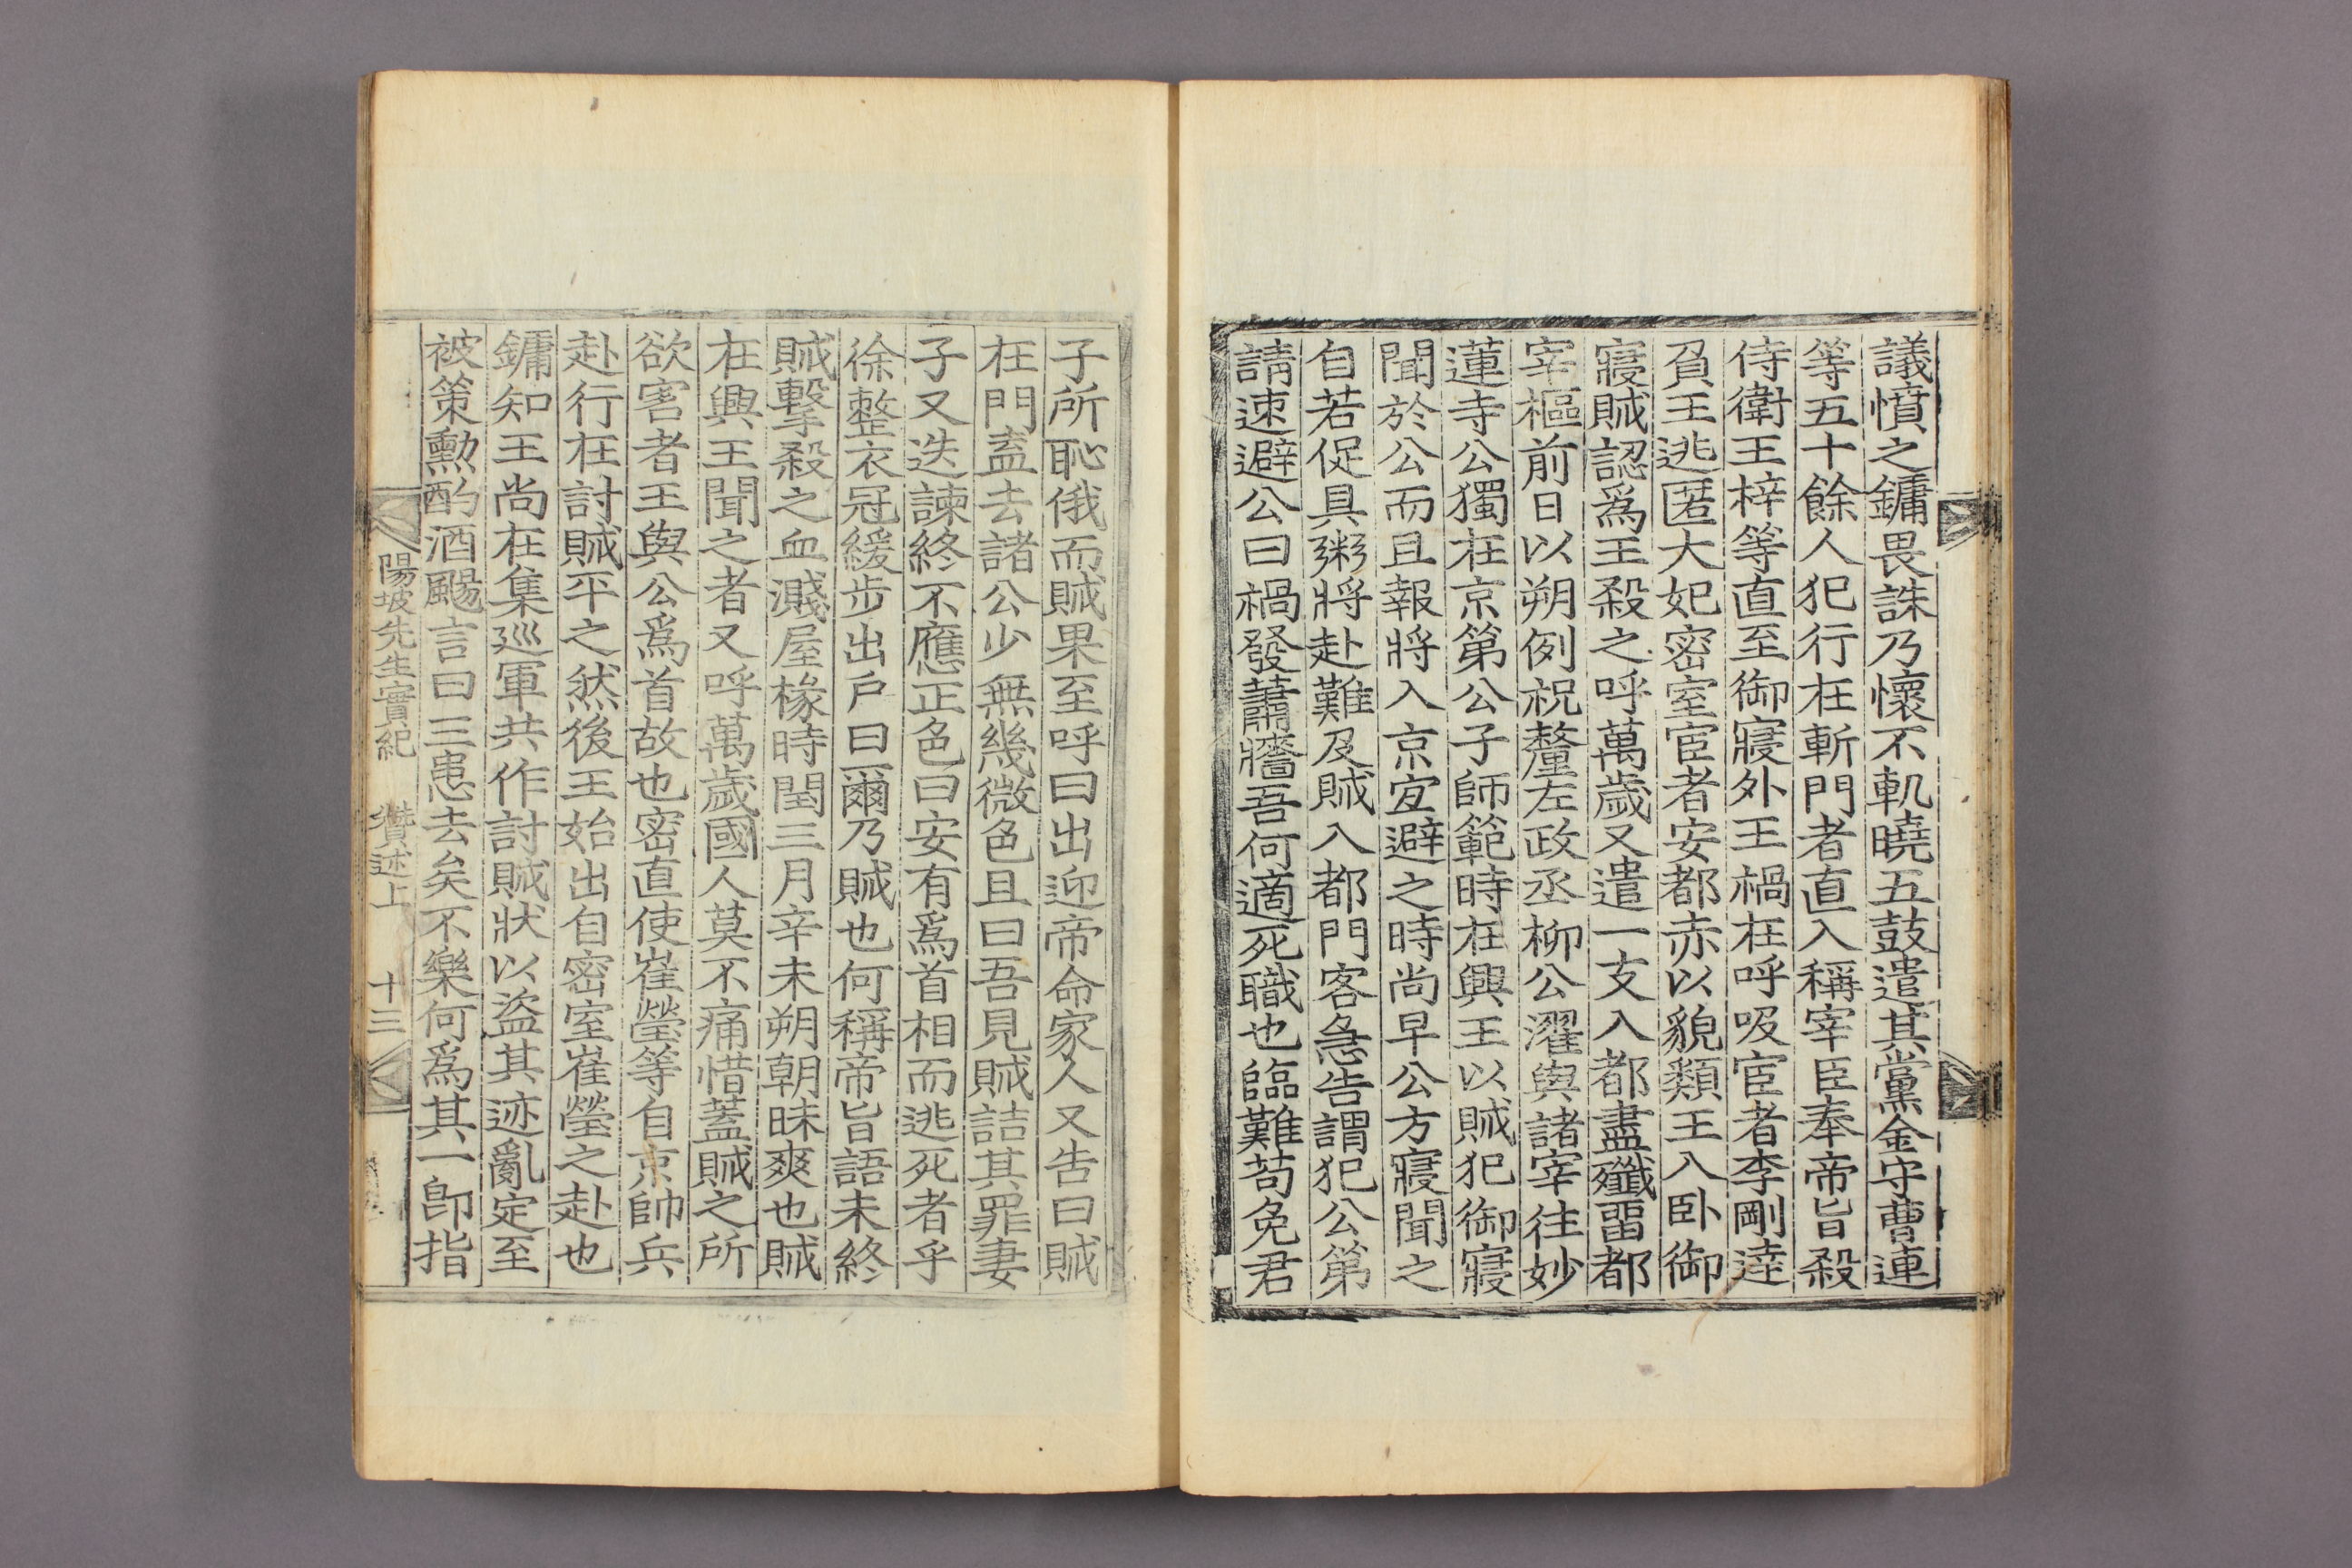 議憤之鏞畏誅乃懷不軌曉五鼓遣其黨金守曹連
等五十餘人犯行在斬門者直入稱宰臣奉帝旨殺
侍衛王梓等直至御寢外王禍在呼吸宦者李剛達
負王逃匿大妃密室宦者安都赤以貌類王入卧御
寢賊認爲王殺之呼萬歲又遣一支入都盡殲畱都
宰樞前日以朔例祝釐左政丞柳公濯與諸宰往妙
蓮寺公獨在京第公子師範時在興王以賊犯御寢
聞於公而且報將入京宜避之時尚早公方寢聞之
自若促具粥將赴難及賊入都門客急告謂犯公第
請速避公曰禍發蕭牆吾何適死職也臨難苟免君
子所恥俄而賊果至呼曰出迎帝命家人又告曰賊
在門盍去諸公少無幾微色且曰吾見賊詰其罪妻
子又迭諫終不應正色曰安有爲首相而逃死者乎
徐整衣冠緩步出戶曰爾乃賊也何稱帝旨語未終
賊擊殺之血濺屋椽時閏三月辛未朔朝昧爽也賊
在興王聞之者又呼萬歲國人莫不痛惜蓋賊之所
欲害者王與公爲首故也密直使崔瑩等自京帥兵
赴行在討賊平之然後王始出自密室崔瑩之赴也
鏞知王尚在集巡軍共作討賊狀以盜其迹亂定至
被策勳酌酒颺言曰三患去矣不樂何爲其一卽指
陽坡先生實紀 贊述上 十三